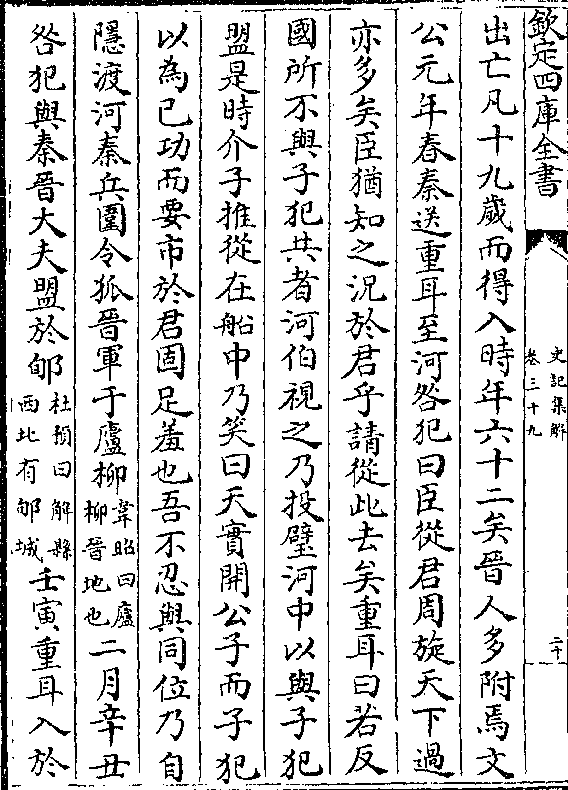 欽定四庫全書
史記集解
卷三十九
二十
出亡凡十九歲而得入時年六十二矣晉人多附焉文
公元年春秦送重耳至河咎犯曰臣從君周旋天下過
亦多矣臣猶知之況於君乎請從此去矣重耳曰若反
國所不與子犯共者河伯視之乃投璧河中以與子犯
盟是時介子推從在船中乃笑曰天實開公子而子犯
以為己功而要市於君固足羞也吾不忍與同位乃自
隱渡河秦兵圍令狐晉軍于廬柳韋昭曰廬柳晉地也二月辛丑
咎犯與秦晉大夫盟於郇杜預曰解縣西北有郇城壬寅重耳入於